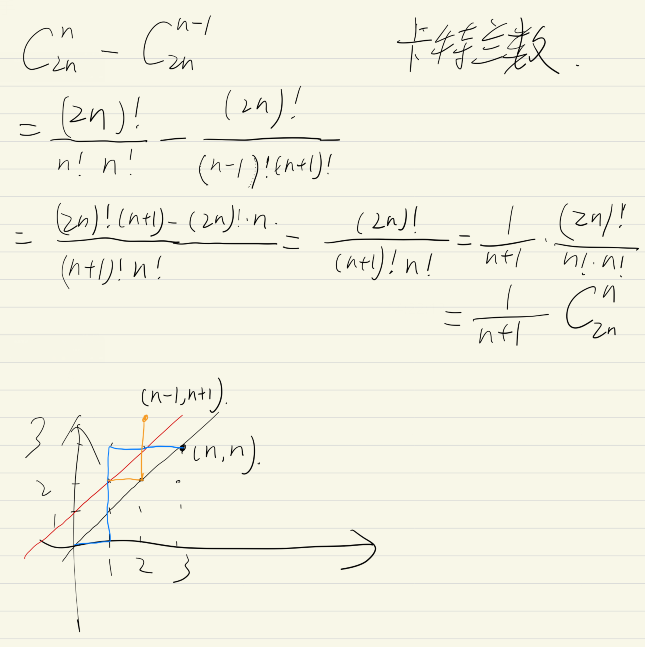 C_{2n}^{n} - C_{2n}^{n-1} 卡特兰数.
= \frac{(2n)!}{n! n!} - \frac{(2n)!}{(n-1)!(n+1)!}
= \frac{(2n)!(n+1) - (2n)!·n.}{(n+1)! n!} = \frac{(2n)!}{(n+1)! n!} = \frac{1}{n+1} · \frac{(2n)!}{n!·n!}
= \frac{1}{n+1} C_{2n}^{n}
(n-1,n+1).
3
(n,n).
2
1
1 2 3